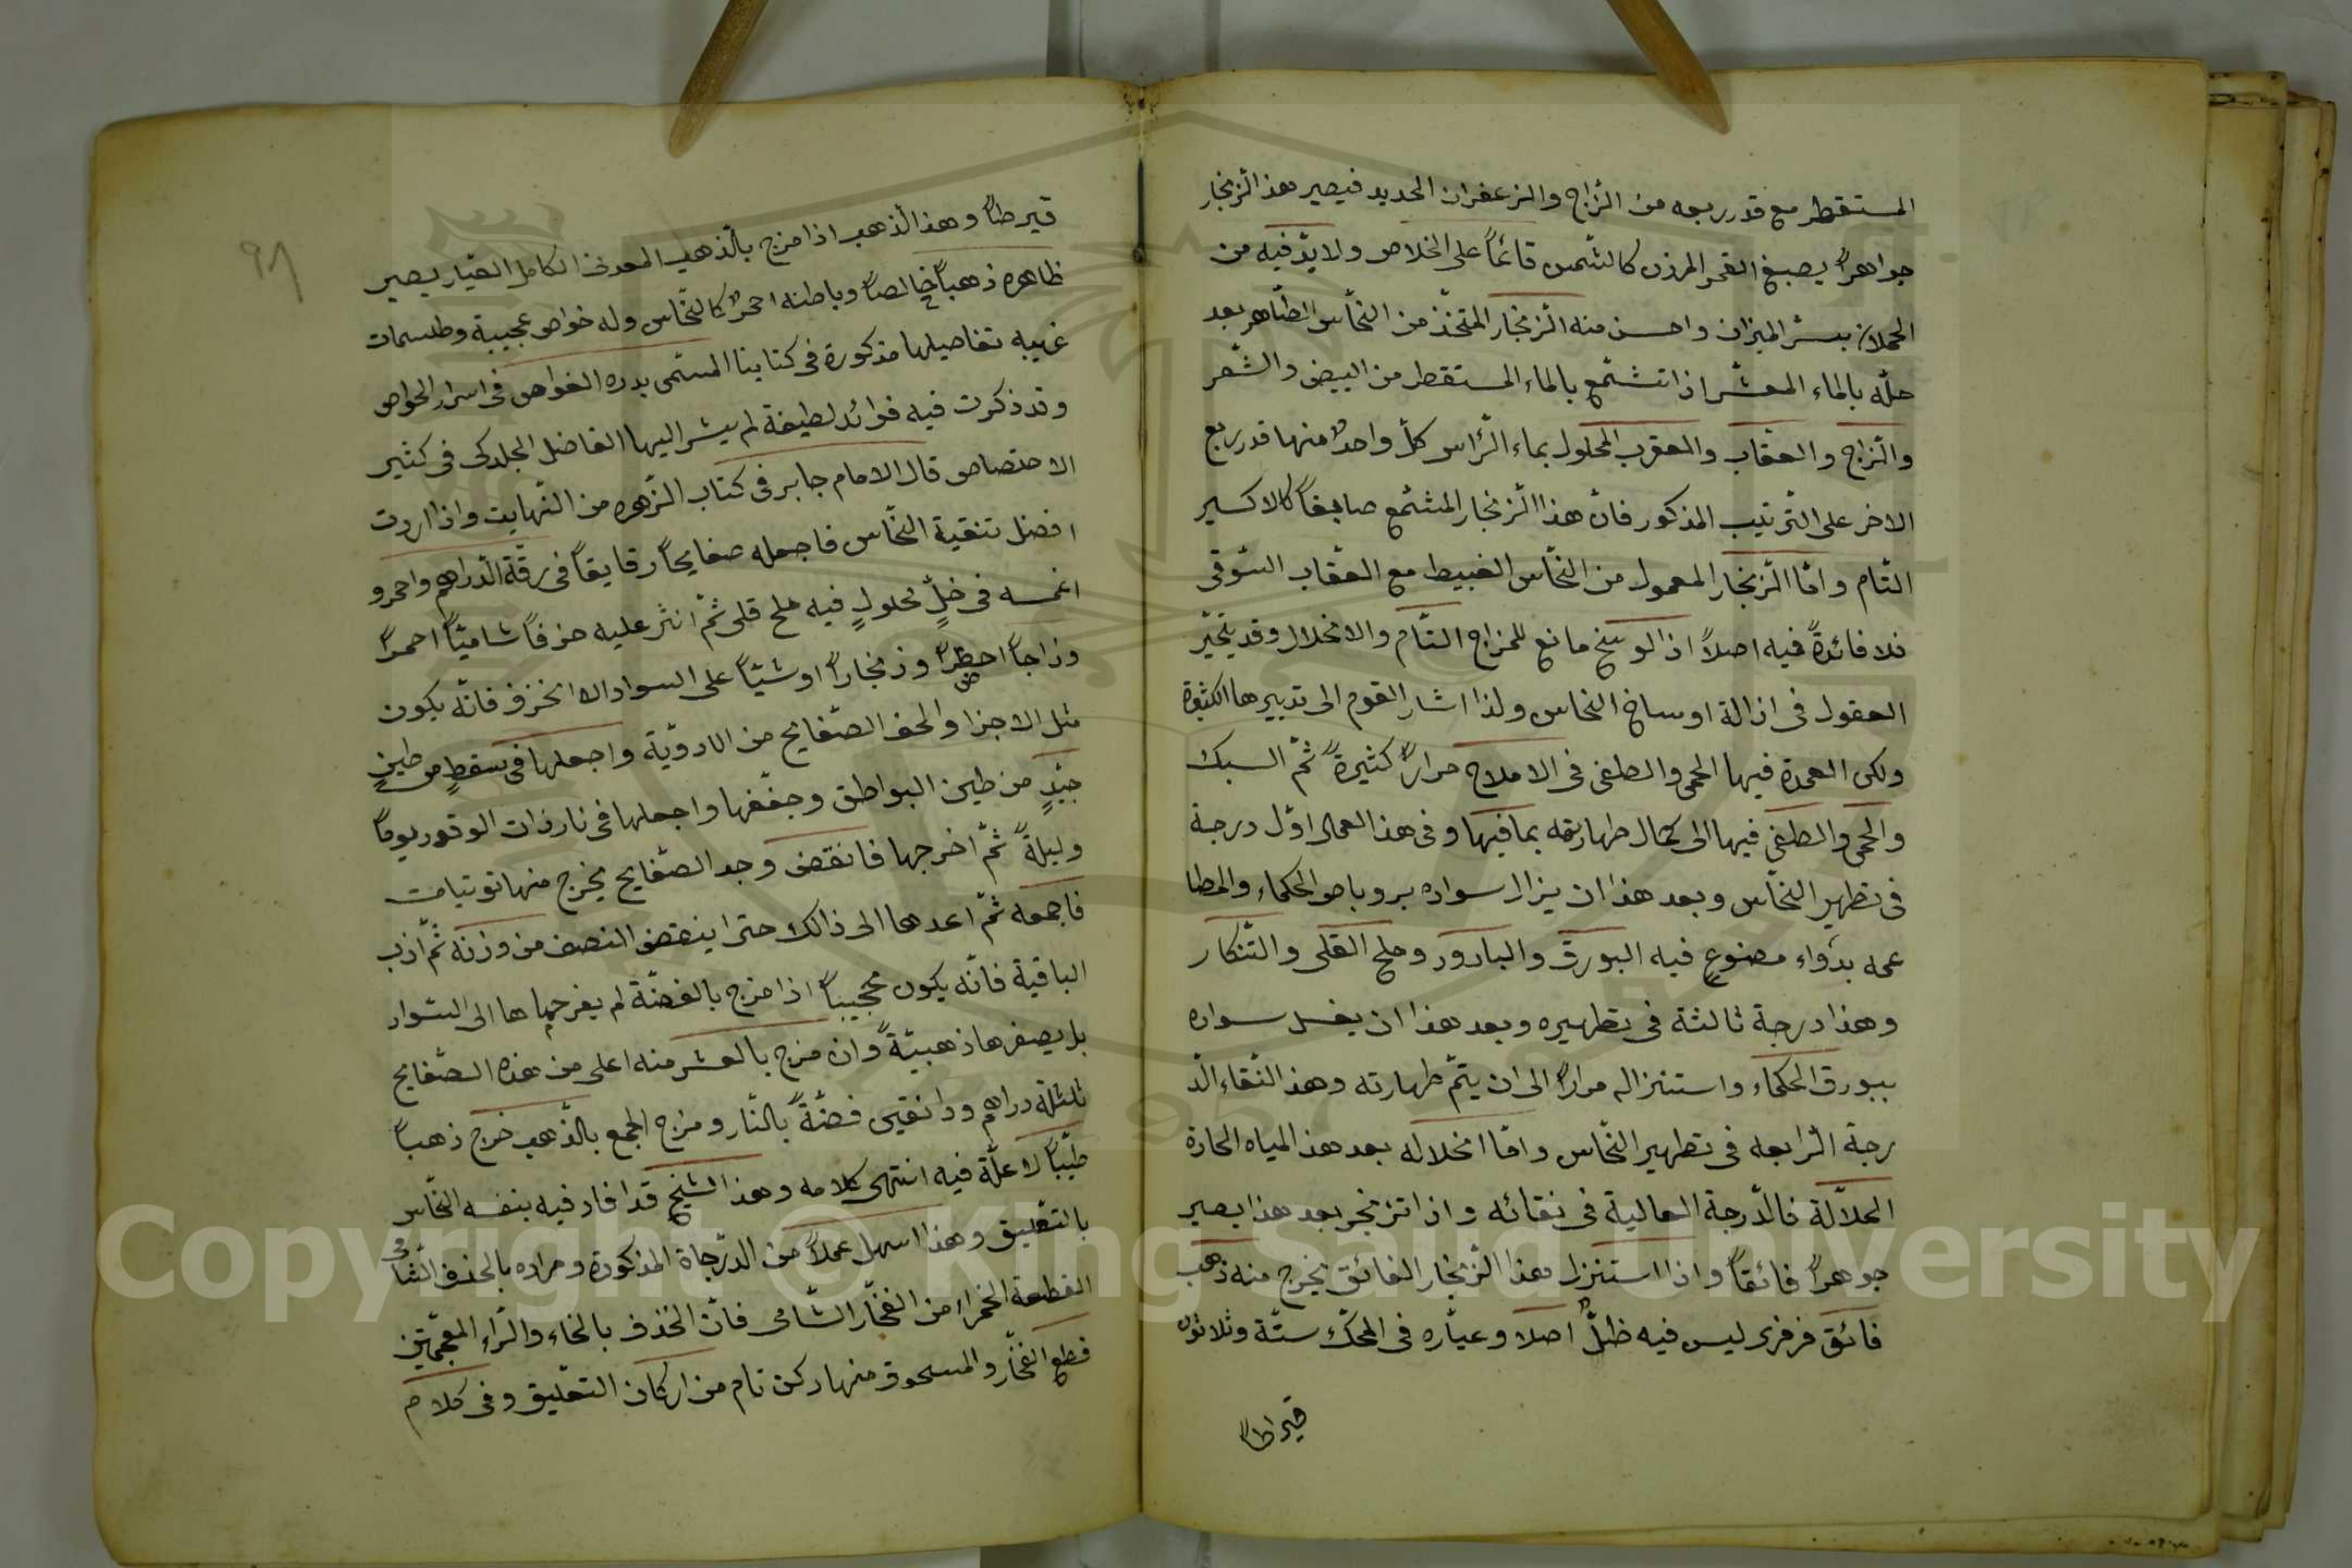 المستقطر مع قدر ربعه من الزّاج والزعفران الحديد فيصير هذا الزنجار
جواهراً يصبغ القمر المرزن كالشّمس قائماً على الخلاص ولا يدّ فيه من
الحملان بسّر الميزان واحسن منه الزنجار المتّخذ من النحّاس الطّاهر بعد
حلّه بالماء المعشّر اذا تشمّع بالماء المستقطر من البيض والشّعر
والزّاج والعقاب والعقرب المحلول بماء الرّاس كلّ واحدٌ منها قدر ربع
الاخر على التّرتيب المذكور فانّ هذا الزنجار المشمّع صابغاً كالاكسير
التّام وامّا الزّنجار المعمول من النحّاس الغبيط مع العقاب السّوقى
فلا فائدةً فيه اصلاً اذ الوسخ مانع للمزاج التّام والانحلال وقد يتحيّر
العقول فى ازالة اوساخ النحاس ولذا اشار القوم الى تدبيرها الكثيرة
ولكن العمدة فيها الحمى والطفى فى الاملاح مراراً كثيرةً ثمّ السبك
والحمى والطفى فيها الى كمال طهارته بما فيها وفى هذ العمال اوّل درجة
فى تطهير النحّاس وبعد هذا ان يزال سواده بروباص الحكماء والمطا
عمه بدواء مصنوع فيه البورق والبارود وملح القلى والتّنكار
وهذا درجة ثالثة فى تطهيره وبعد هذا ان يغسل سواده
ببورق الحكماء واستنزاله مراراً الى ان يتمّ طهارته وهذ النّقاء الدّ
رجة الرّابعه فى تطهير النحّاس وامّا انحلاله بعد هذ المياه الحارة
الحلّالة فالدّرجة العالية فى نقائه واذا تزنجر بعد هذا يصير
جوهراً فائقاً واذا استنزل هذا الزّنجار الفائق يخرج منه ذهب
فائق فرفرى ليس فيه ظلٌّ اصلا وعياره فى المحكّ ستّة وثلاثون
قيراطاً
٩٨
قيرطاً وهذ الذهب اذا مزج بالذهب المعدنى الكامل العيار يصير
ظاهره ذهباً خالصاً وباطنه احمرٌ كالنحّاس وله خواص عجيبة وطلسمات
غريبه تفاصيلها مذكورة فى كتابنا المسمّى بدره الغواص فى اسرار الخواص
وقد ذكرت فيه فوائد لطيفة لم يشر اليها الفاضل الجلدكى فى كثير
الاختصاص قال الامام جابر فى كتاب الزّهره من النّهايت واذا اردت
افضل تنقية النحّاس فاجعله صفايحاً رقايقاً فى رقّة الدّراهم واحمر و
اغمسه فى خلٍّ محلولٍ فيه ملح قلى ثمّ انثر عليه خزفاً شاميّاً احمراً
وزاجاً اخضراً وزنجاراً او شيّاً على السواد الا الخزف فانّه يكون
مثل الاجزا والحف الصّفايح من الادويّة واجعلها فى سقطٍ من طينٍ
جيّدٍ من طين البواطق وجفّفها واجعلها فى نار ذات الوقود يوماً
وليلةً ثمّ اخرجها فانقض وجد الصّفايح يخرج منها توتيات
فاجمعه ثمّ اعدها الى ذالك حتىّ ينقض النصف من وزنه ثمّ اذب
الباقية فانّه يكون عجيباً اذا مزج بالفضّة لم يغرجها الى السّواد
بل يصفرها ذهبيّةً وان مزج بالعشر منه اعلى من هذه الصّفايح
ثلثلة دراهم ودانقين فضّةً بالنّار ومزاج الجمع بالذّهب خرج ذهباً
طيّباً لا علّة فيه انتهى كلامه وهذ الشّيخ قد افاد فيه بنفسه النحّاس
بالتعليق وهذا اسهل عملاً من الدّرجاة المذكورة ومراده بالخذف الشّامى
القطعة الخمراء من الفخّار الشّامى فانّ الخذف بالخاء والرّاء المعجمتين
قطع الفخّار والمسحوق منها ركن تام من اركان التعليق وفى كلام